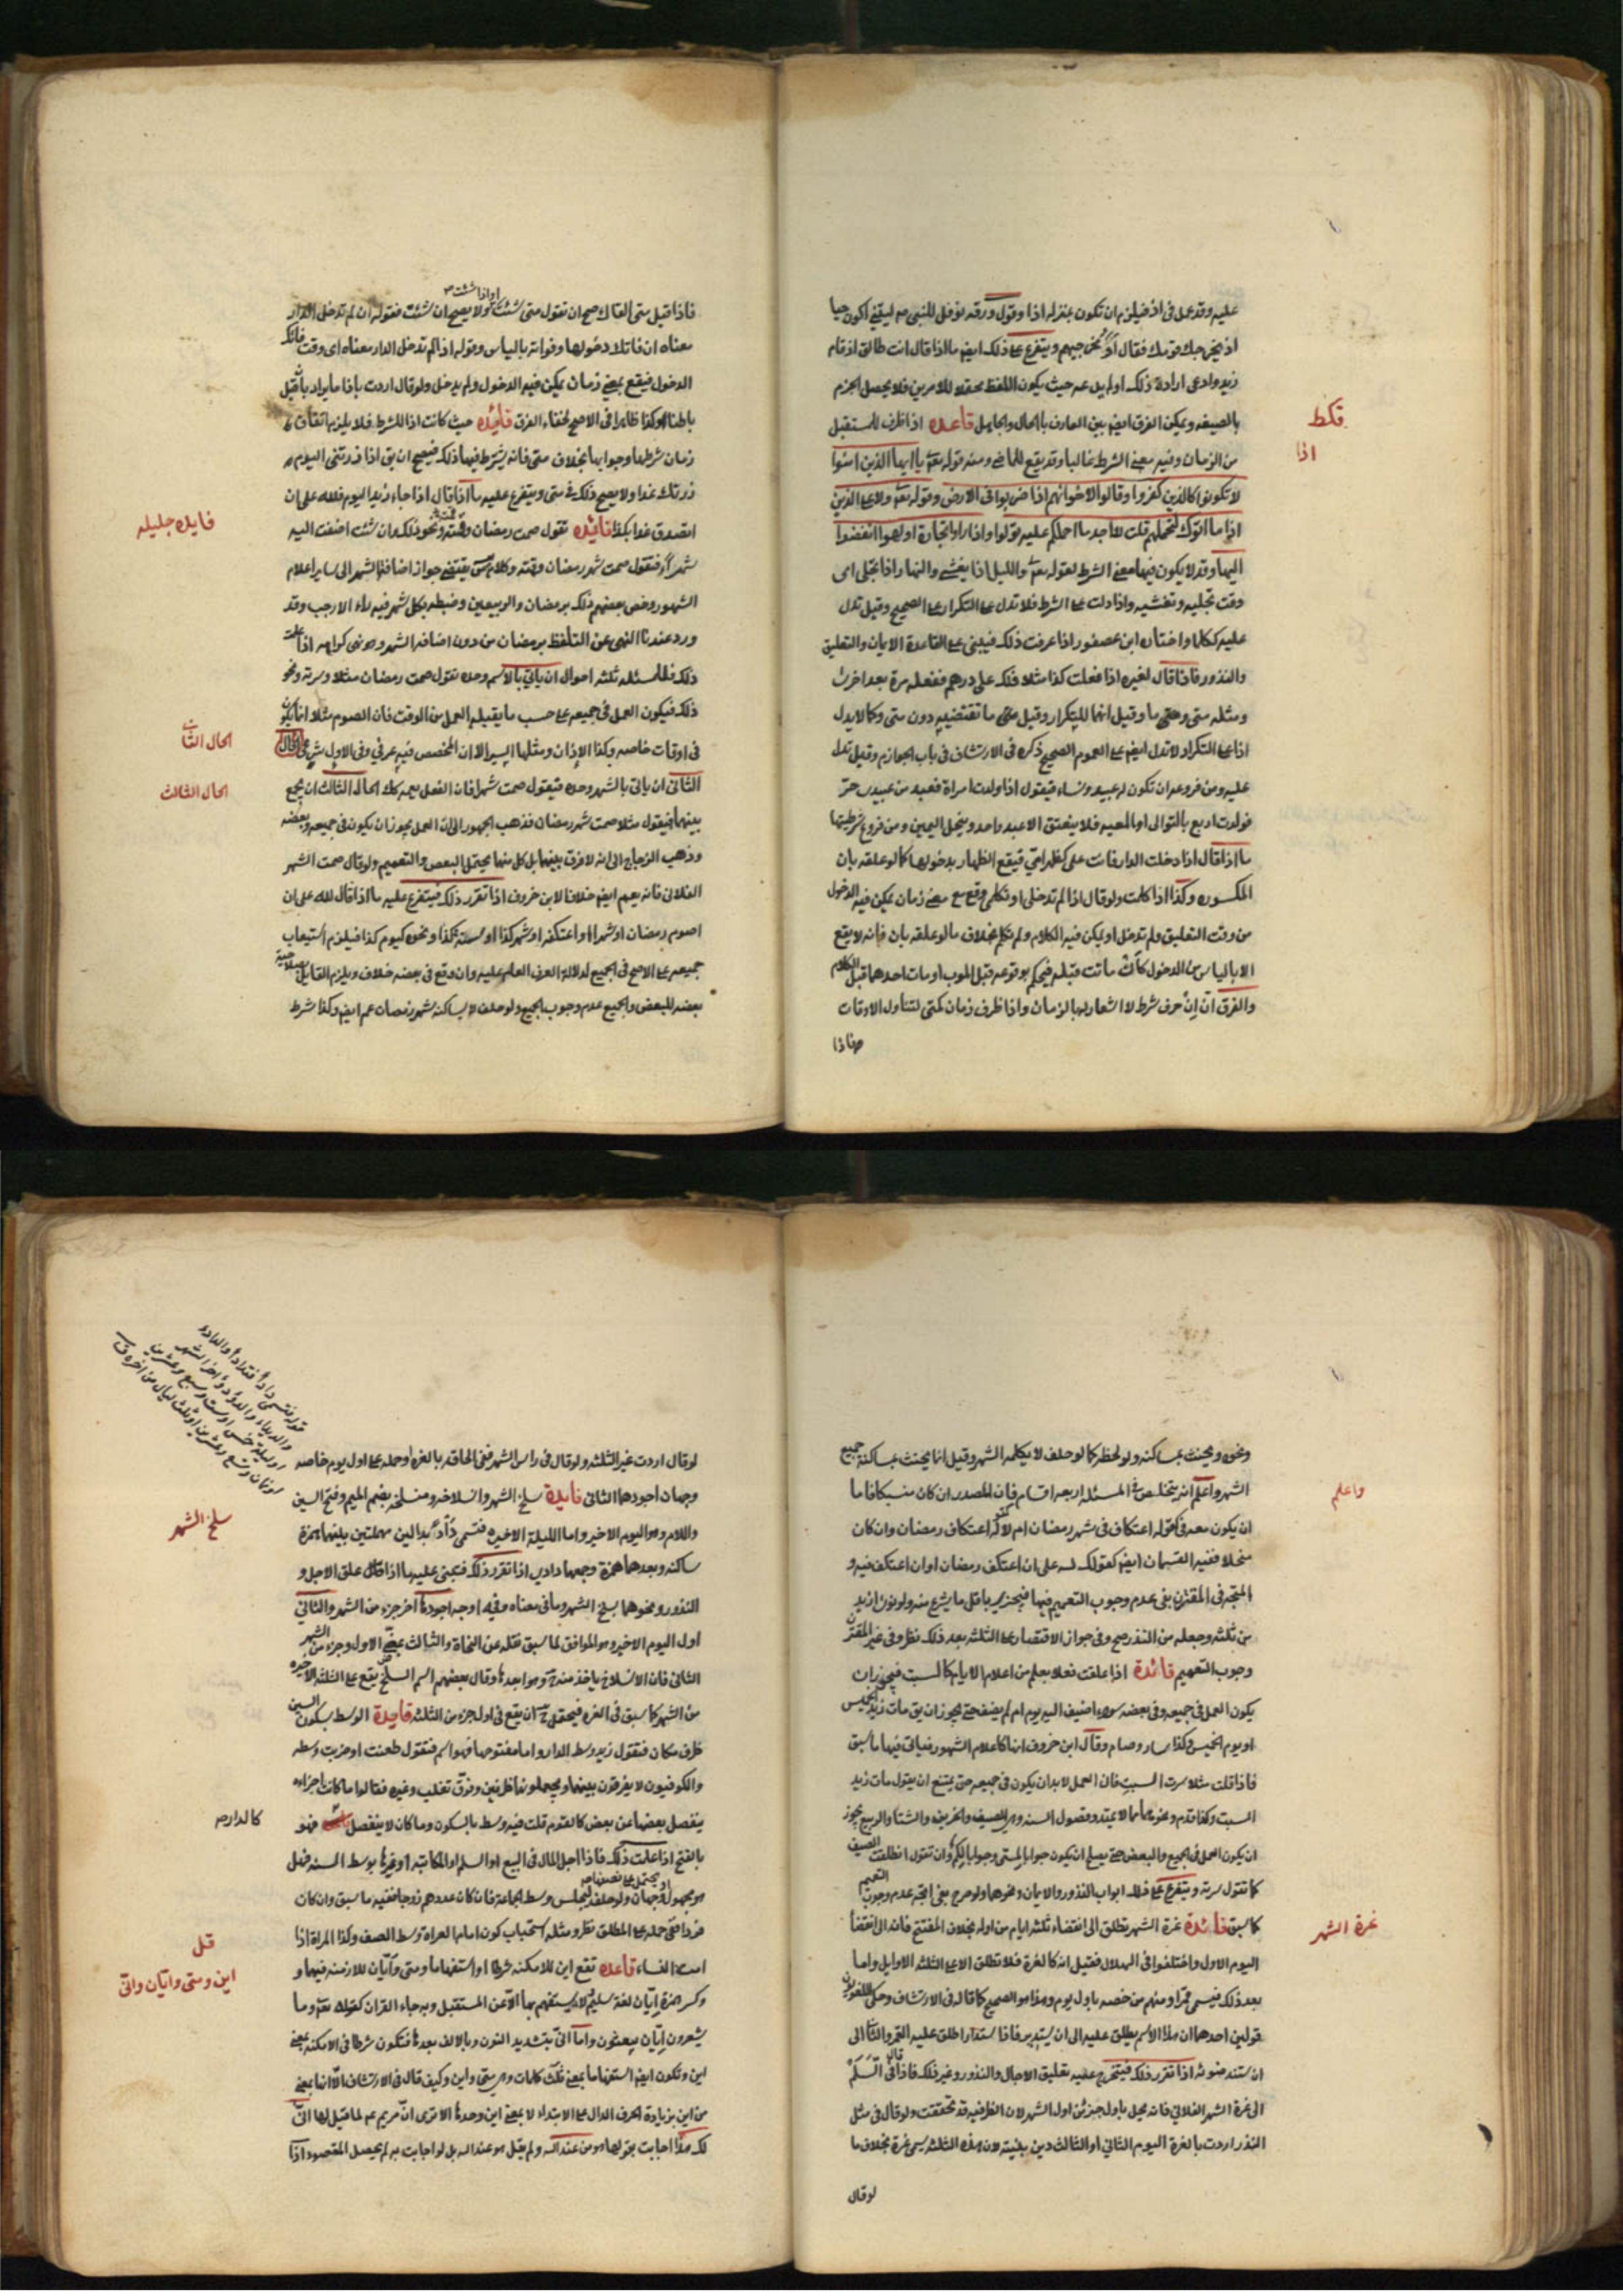 عليه وقد عمل فى اذ فيلزم ان تكون بمنزلة اذا وقول ورقه نوفل للنبى ص ليتنى اكون حيا
اذ يخرجك قومك فقال او مخرجيهم ويتفرع على ذلك ايضا ما اذا قال انت طالق اذ قام
زيد وادعى ارادة ذلك او لم يدعه حيث يكون اللفظ محتملا للامرين فلا يحصل الجزم
بالصيغه ويمكن الفرق ايضا بين العارف بالحال والجاهل قاعده اذا ظرف للمستقبل
من الزمان وفيه معنى الشرط غالبا وقد يقع للماضى ومنه قوله تعالى يا ايها الذين امنوا
لا تكونوا كالذين كفروا وقالوا لاخوانهم اذا ضربوا فى الارض وقوله تعالى ولا على الذين
اذا ما اتوك لتحملهم قلت لا اجد ما احملكم عليه تولوا واذا راوا تجارة او لهوا انفضوا
اليها وقد لا يكون فيها معنى الشرط لقوله تعالى والليل اذا يغشى والنهار اذا تجلى اى
وقت تجليه وتغشيه واذا دلت على الشرط فلا تدل على التكرار على الصحيح وقيل تدل
عليه ككلما واختاره ابن عصفور اذا عرفت ذلك فيبنى على القاعدة الايمان والتعليق
والنذور فاذا قال لغيره اذا فعلت كذا مثلا فلك على درهم ففعله مرة بعد اخرى
ومثله متى ومتى ما وقيل انها للتكرار وقيل متى ما تقتضيه دون متى وكما لا يدل
اذا على التكرار لا تدل ايضا على العموم الصحيح ذكره فى الارتشاف فى باب الجوازم وقيل تدل
عليه ومن فروعه ان تكون له عبيد ونساء فيقول اذا ولدت امراة فعبد من عبيدى حر
فولدت اربع بالتوالى او المعيه فلا ينعتق الا عبد واحد وينحل اليمين ومن فروع شرطيتها
ما اذا قال اذا دخلت الدار فانت على كظهر امى فيقع الظهار بدخولها كما لو علقه بان
المكسوره وكذا اذا كلمت ولو قال اذا لم تدخلى او تكلمى وقع مع مضى زمان يمكن فيه الدخول
من وقت التعليق ولم تدخل او يمكن فيه الكلام ولم تكلم بخلاف ما لو علقه بان فانه لا يقع
الا بالياس من الدخول كأن ماتت قبله فيحكم بوقوعه قبل الموت او مات احدهما قبل الكلام
والفرق ان اِنْ حرف شرط لا اشعار لها بالزمان واذا ظرف زمان كمتى لتناول الاوقات
فاذا
قكط
اذا
او اذا شئت صح
فاذا قيل متى القاك صح ان تقول متى شئت ولا يصح ان شئت فقوله ان لم تدخلى الدار
معناه ان فاتك دخولها وفواته بالياس وقوله اذا لم تدخل الدار معناه اى وقت فاتك
الدخول فيقع بمضى زمان يمكن فيه الدخول ولم يدخل ولو قال اردت باذا ما يراد بان قبل
باطنا وكذا ظاهرا فى الاصح لخفاء الفرق فائده حيث كانت اذا للشرط فلا يلزم اتفاق
زمان شرطها وجوابها بخلاف متى فانه يشترط فيها ذلك فيصح ان يق اذا زرتنى اليوم
زرتك غدا ولا يصح ذلك فى متى ويتفرع عليه ما اذا قال اذا جاء زيد اليوم فلله على ان
اتصدق غدا بكذا فائده تقول صمت رمضان وقمته ونحو ذلك وان شئت اضفت اليه
شهرا فتقول صمت شهر رمضان وقمته وكلام س يقتضى جواز اضافة الشهر الى ساير اعلام
الشهور وخص بعضهم ذلك برمضان والربيعين وضبطه بكل شهر فيه راء الا رجب وقد
ورد عندنا النهى عن التلفظ برمضان من دون اضافة الشهر وهو نهى كراهه اذا علمت
ذلك فللمسئله ثلثه احوال ان ياتى بالاسم وحده تقول صمت رمضان مثلا وسرته ونحو
ذلك فيكون العمل فى جميعه على حسب ما يقبله العمل من الوقت فان الصوم مثلا انما يكون
فى اوقات خاصه وكذا الاذان ومثلها السير الا ان المخصص فيه عرفى وفى الاول شرعى الحال
الثانى ان ياتى بالشهر وحده فيقول صمت شهرا فان الفعل يعمه كك الحال الثالث ان يجمع
بينهما فيقول مثلا صمت شهر رمضان فذهب الجمهور الى ان العمل يجوز ان يكون فى جميعه وبعضه
وذهب الزجاج الى انه لا فرق بينهما بل كل منهما يحتمل البعض والتعميم ولو قال صمت الشهر
الفلانى فانه يعم ايضا خلافا لابن خروف اذا تقرر ذلك فيتفرع عليه ما اذا قال لله على ان
اصوم رمضان او شهرا او اعتكفه او شهر كذا او سنة كذا ونحوه كيوم كذا فيلزم استيعاب
جميعه على الاصح فى الجميع لدلالة العرف العام عليه وان وقع فى بعضه خلاف ويلزم القايل بصلاحية
بعضه للبعض والجميع عدم وجوب الجميع ولو حلف لا يساكنه شهر رمضان عم ايضا وكذا شرط
فايده جليله
الحال الثانى
الحال الثالث
ونحوه ويحنث بمساكنه ولو لحظه كما لو حلف لا يكلمه الشهر وقيل انما يحنث بمساكنة جميع
الشهر واعلم انه يتخلص فى المسئله اربعه اقسام فان المصدر ان كان منسبكا فاما
ان يكون معه فى كقوله اعتكاف فى شهر رمضان ام لا كقوله اعتكاف رمضان وان كان
منحلا ففيه القسمان ايضا كقولك لله على ان اعتكف رمضان او ان اعتكف فيه و
المتجه فى المقترن بفى عدم وجوب التعميم فيها فيجزى باقل ما يشرع منه ولو نوى ازيد
من ثلثه وجعله من النذر صح وفى جواز الاقتصار على الثلثه بعد ذلك نظر وفى غير المقترن
وجوب التعميم فائدة اذا علقت فعلا بعلم من اعلام الايام كالسبت فيجوز ان
يكون العمل فى جميعه وفى بعضه سواء اضيف اليه يوم ام لم يضف حتى يجوز ان يق مات زيد الخميس
او يوم الخميس وكذا سار وصام وقال ابن خروف انها كاعلام الشهور فياتى فيها ما سبق
فاذا قلت مثلا سرت السبت فان العمل لا بد ان يكون فى جميعه حتى يمتنع ان يقول مات زيد
السبت وكذا قدم ونحوهما مما لا يمتد وفصول السنه وهى الصيف والخريف والشتا والربيع يجوز
ان يكون العمل فى الجميع والبعض حتى يصلح ان يكون جوابا لمتى وجوابا لكم وان تقول انطلقت الصيف
كما تقول سرته ويتفرع على ذلك ابواب النذور والايمان ونحوها ولو صرح بفى اتجه عدم وجوب التعميم
كما سبق فائدة غرة الشهر تطلق الى انقضاء ثلثة ايام من اوله بخلاف المفتتح فانه الى انقضأ
اليوم الاول واختلفوا فى الهلال فقيل انه كالغرة فلا تطلق الا على الثلثه الاوايل واما
بعد ذلك فيسمى قمرا ومنهم من خصه باول يوم وهذا هو الصحيح كما قاله فى الارتشاف وحكى اللغويون
قولين احدهما ان هذا الاسم يطلق عليه الى ان يستدير فاذا استدار اطلق عليه القمر والثانى الى
ان يستند ضوئه اذا تقرر ذلك فيتخرج عليه تعليق الاجال والنذور وغير ذلك فاذا قال فى السلم
الى غرة الشهر الفلانى فانه يحل باول جزء من اول الشهر لان الظرفيه قد تحققت ولو قال فى مثل
النذر اردت بالغرة اليوم الثانى او الثالث دين بنيته لان هذه الثلثه يسمى غرة بخلاف ما
لو قال
واعلم
غرة الشهر
لو قال اردت غير الثلثه ولو قال فى راس الشهر ففى الحاقه بالغره او حمله على اول يوم خاصه
وجهان اجودهما الثانى فايدة سلخ الشهر وانسلاخه ومنسلخه بضم الميم وفتح السين
واللام وهو اليوم الاخير واما الليلة الاخيره فتسمى دأداً بدالين مهملتين بينهما همزة
ساكنه وبعدهما همزة وجمعها دادى اذا تقرر ذلك فيبنى عليه ما اذا قال علق الاجل و
النذور ونحوهما بسلخ الشهر وما فى معناه وفيه اوجه اجودها اخر جزء من الشهر والثانى
اول اليوم الاخير وهو الموافق لما سبق نقله عن النحاة والثالث بمضى الاول وجزء من الشهر
الثانى فان الانسلاخ ياخذ منه وهو ابعدها وقال بعضهم اسم السلخ يقع على الثلثه الاخيره
من الشهر كما سبق فى الغره فيحتمل ح ان يقع فى اول جزء من الثلثه فايدة الوسط بسكون السين
ظرف مكان فتقول زيد وسط الدار واما مفتوحها فهو اسم فتقول طعنت او ضربت وسطه
والكوفيون لا يفرقون بينهما ويجعلونها ظرفين وفرق تغلب وغيره فقالوا ما كانت اجزاءه
ينفصل بعضها عن بعض كالقوم قلت فيه وسط بالسكون وما كان لا ينفصل فهو
بالفتح اذا علمت ذلك فاذا اجل المال فى البيع او السلم او المكاتبه او غيرها بوسط السنه فهل
هو مجهول او يحتمل على نصفها صح وجهان ولو حلف ليجلس وسط الجماعة فان كان عددهم زوجا ففيه ما سبق وان كان
فردا ففى حمله على المطلق نظر ومثله استحباب كون امام العراة وسط الصف وكذا المراة اذا
امت النساء قاعده تقع اين للامكنه شرطا او استفهاما ومتى وأيّان للازمنه فيهما و
وكسر همزة ايان لغة سليم لا يستفهم بها الا عن المستقبل وبه جاء القران كقوله تعالى وما
يشعرون ايان يبعثون واما انى بتشديد النون وبالالف بعدها فتكون شرطا فى الامكنه بمعنى
اين وتكون ايضا استفهاما بمعنى ثلث كلمات وهى متى واين وكيف قال فى الارتشاف الا انها بمعنى
من اين بزيادة الحرف الدال على الابتداء لا بمعنى اين وحدها الا ترى ان مريم عم لما قيل لها انى
لك هذا اجابت بقولها هو من عند الله ولم يقل هو عند الله بل لو اجابت به لم يحصل المقصود اذا
سلخ الشهر
كالدار صح
قل
اين ومتى وايان وانى